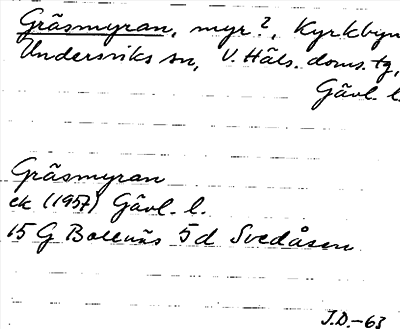 Gräsmyran, myr?, Kyrkbyn
Undersviks sn, V. Häls. doms. tg,
Gävl. l.
Gräsmyran
ek (1957) Gävl. l.
15 G Bollnäs 5d Svedåsen
J.D.-63